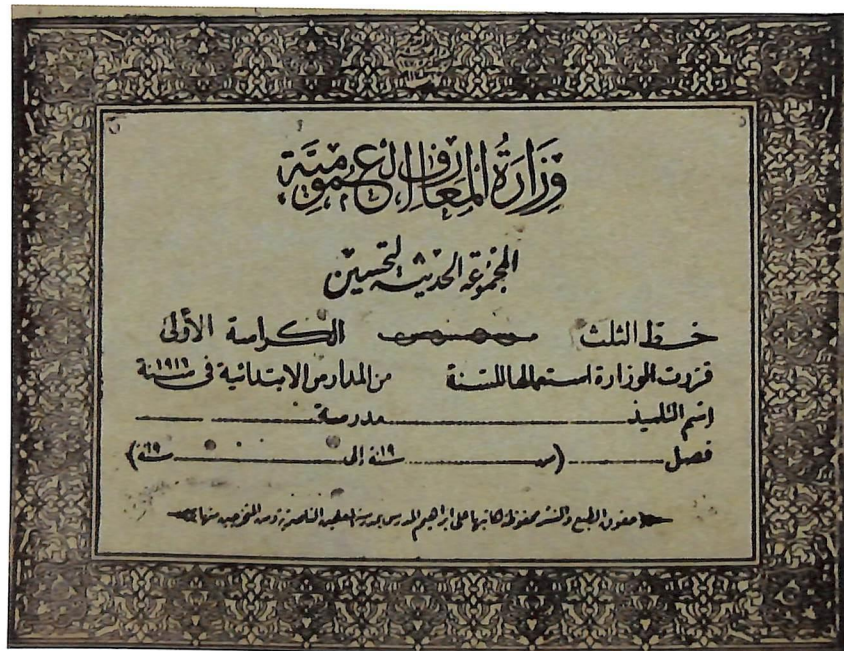 وزارة المعارف العمومية
المجموعة الحديثة لتحسين
خط الثلث الكراسة الأولى
قررت الوزارة استعمالها للسنة من المدارس الابتدائية فى سنة ١٩١٦
اسم التلميذ مدرسة
فصل (سنة ١٩ إلى سنة ١٩)
حقوق الطبع والنشر محفوظة لكاتبها على ابراهيم المدرس بمدرسة المعلمين الناصرية ومن المتخرجين منها